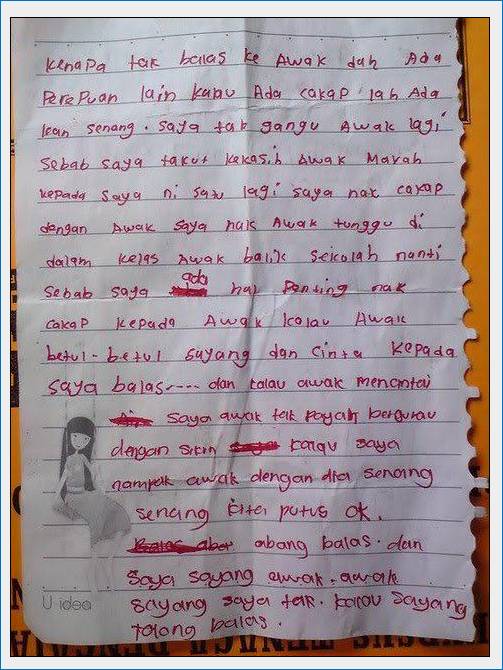 kenapa tak balas ke Awak dah Ada
Perepuan lain kalau Ada cakap lah Ada
kan senang. saya tak gangu Awak lagi
Sebab saya takut kekasih Awak Marah
kepada saya ni satu lagi saya nak cakap
dengan Awak saya nak Awak tunggu di
dalam kelas Awak balik sekolah nanti
sebab saya ada hal Penting nak
cakap kepada Awak kalau Awak
betul-betul sayang dan cinta kepada
saya balas---- dan kalau awak mencintai
saya awak tak payah bergurau
dengan kalau saya
nampak awak dengan dia senang
senang kita putus ok.
abang balas. dan
saya sayang awak. awak
U idea
sayang saya tak. kalau sayang
tolong balas.